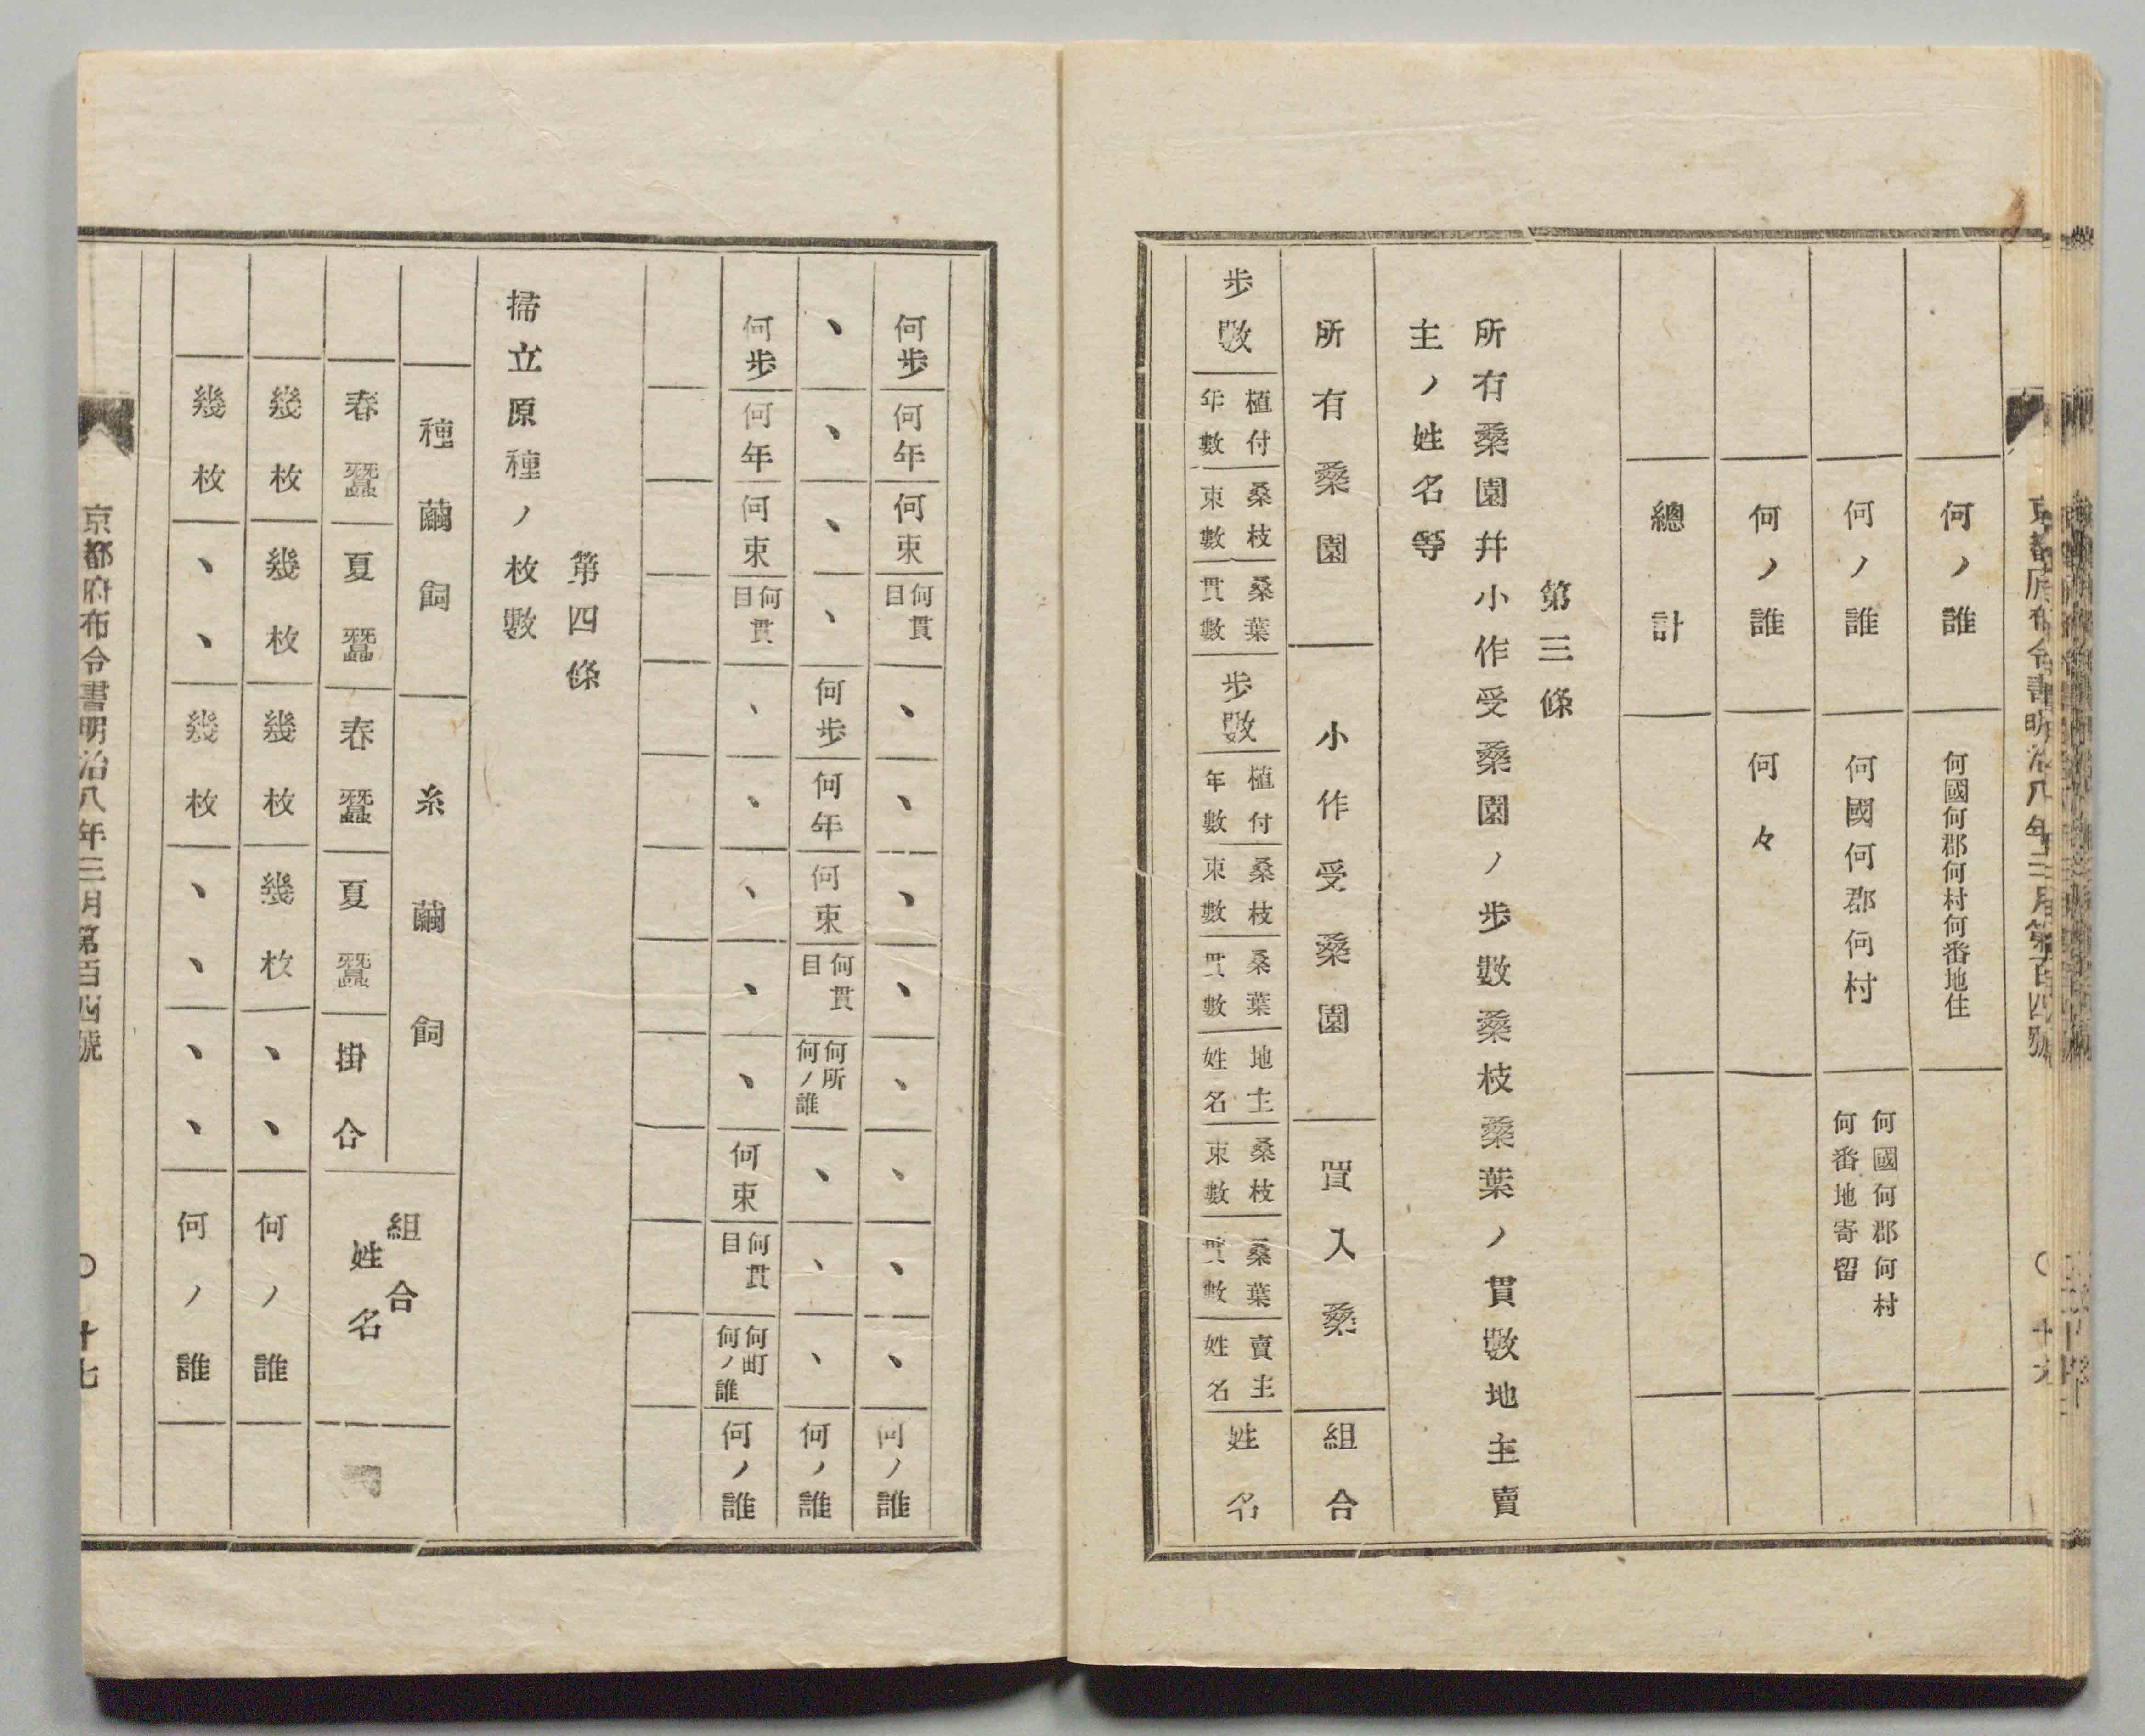 京都府布令書明治八年三月第百四號
何ノ誰 何國何郡何村何番地住
何ノ誰 何國何郡何村 何國何郡何村
何番地寄留
何ノ誰 何々
總計
第三條
所有桑園幷小作受桑園ノ步數桑枝桑葉ノ貫數地主賣
主ノ姓名等
所有桑園 小作受桑園 買入桑 組合
步數 植付年數 桑枝束數 桑葉貫數 步數 植付年數 桑枝束數 桑葉貫數 地主姓名 桑枝束數 桑葉貫數 賣主姓名 姓名
何步 何年 何束 何貫目 、 、 、 、 、 、 、 、 何ノ誰
、 、 、 、 何步 何年 何束 何貫目 何所何ノ誰 、 、 、 何ノ誰
何步 何年 何束 何貫目 、 、 、 、 、 何束 何貫目 何町何ノ誰 何ノ誰
第四條
掃立原種ノ枚數
種繭飼 糸繭飼 組合
春蠶 夏蠶 春蠶 夏蠶 掛合 姓名
幾枚 幾枚 幾枚 幾枚 、、 何ノ誰
幾枚 、、 幾枚 、、 、、 何ノ誰
京都府布令書明治八年三月第百四號 〇 十七